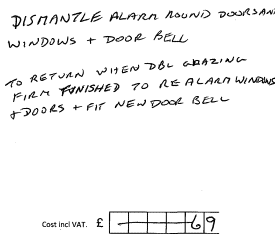 DISMANTLE ALARM ROUND DOORS AN
WINDOWS + DOOR BELL
TO RETURN WHEN DBL GLAZING
FIRM FINISHED TO RE ALARM WINDOWS
+ DOORS + FIT NEW DOOR BELL
Cost incl VAT. £ – – – – 69